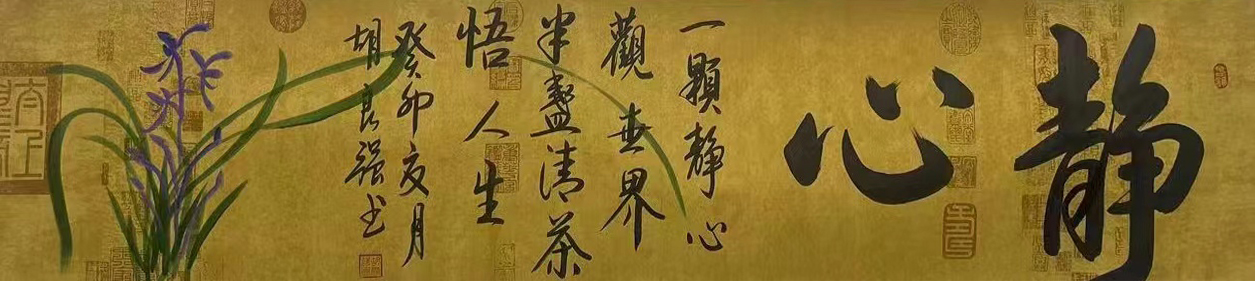 静心
一顆静心
觀世界
半盞清茶
悟人生
癸卯亥月
胡良强书